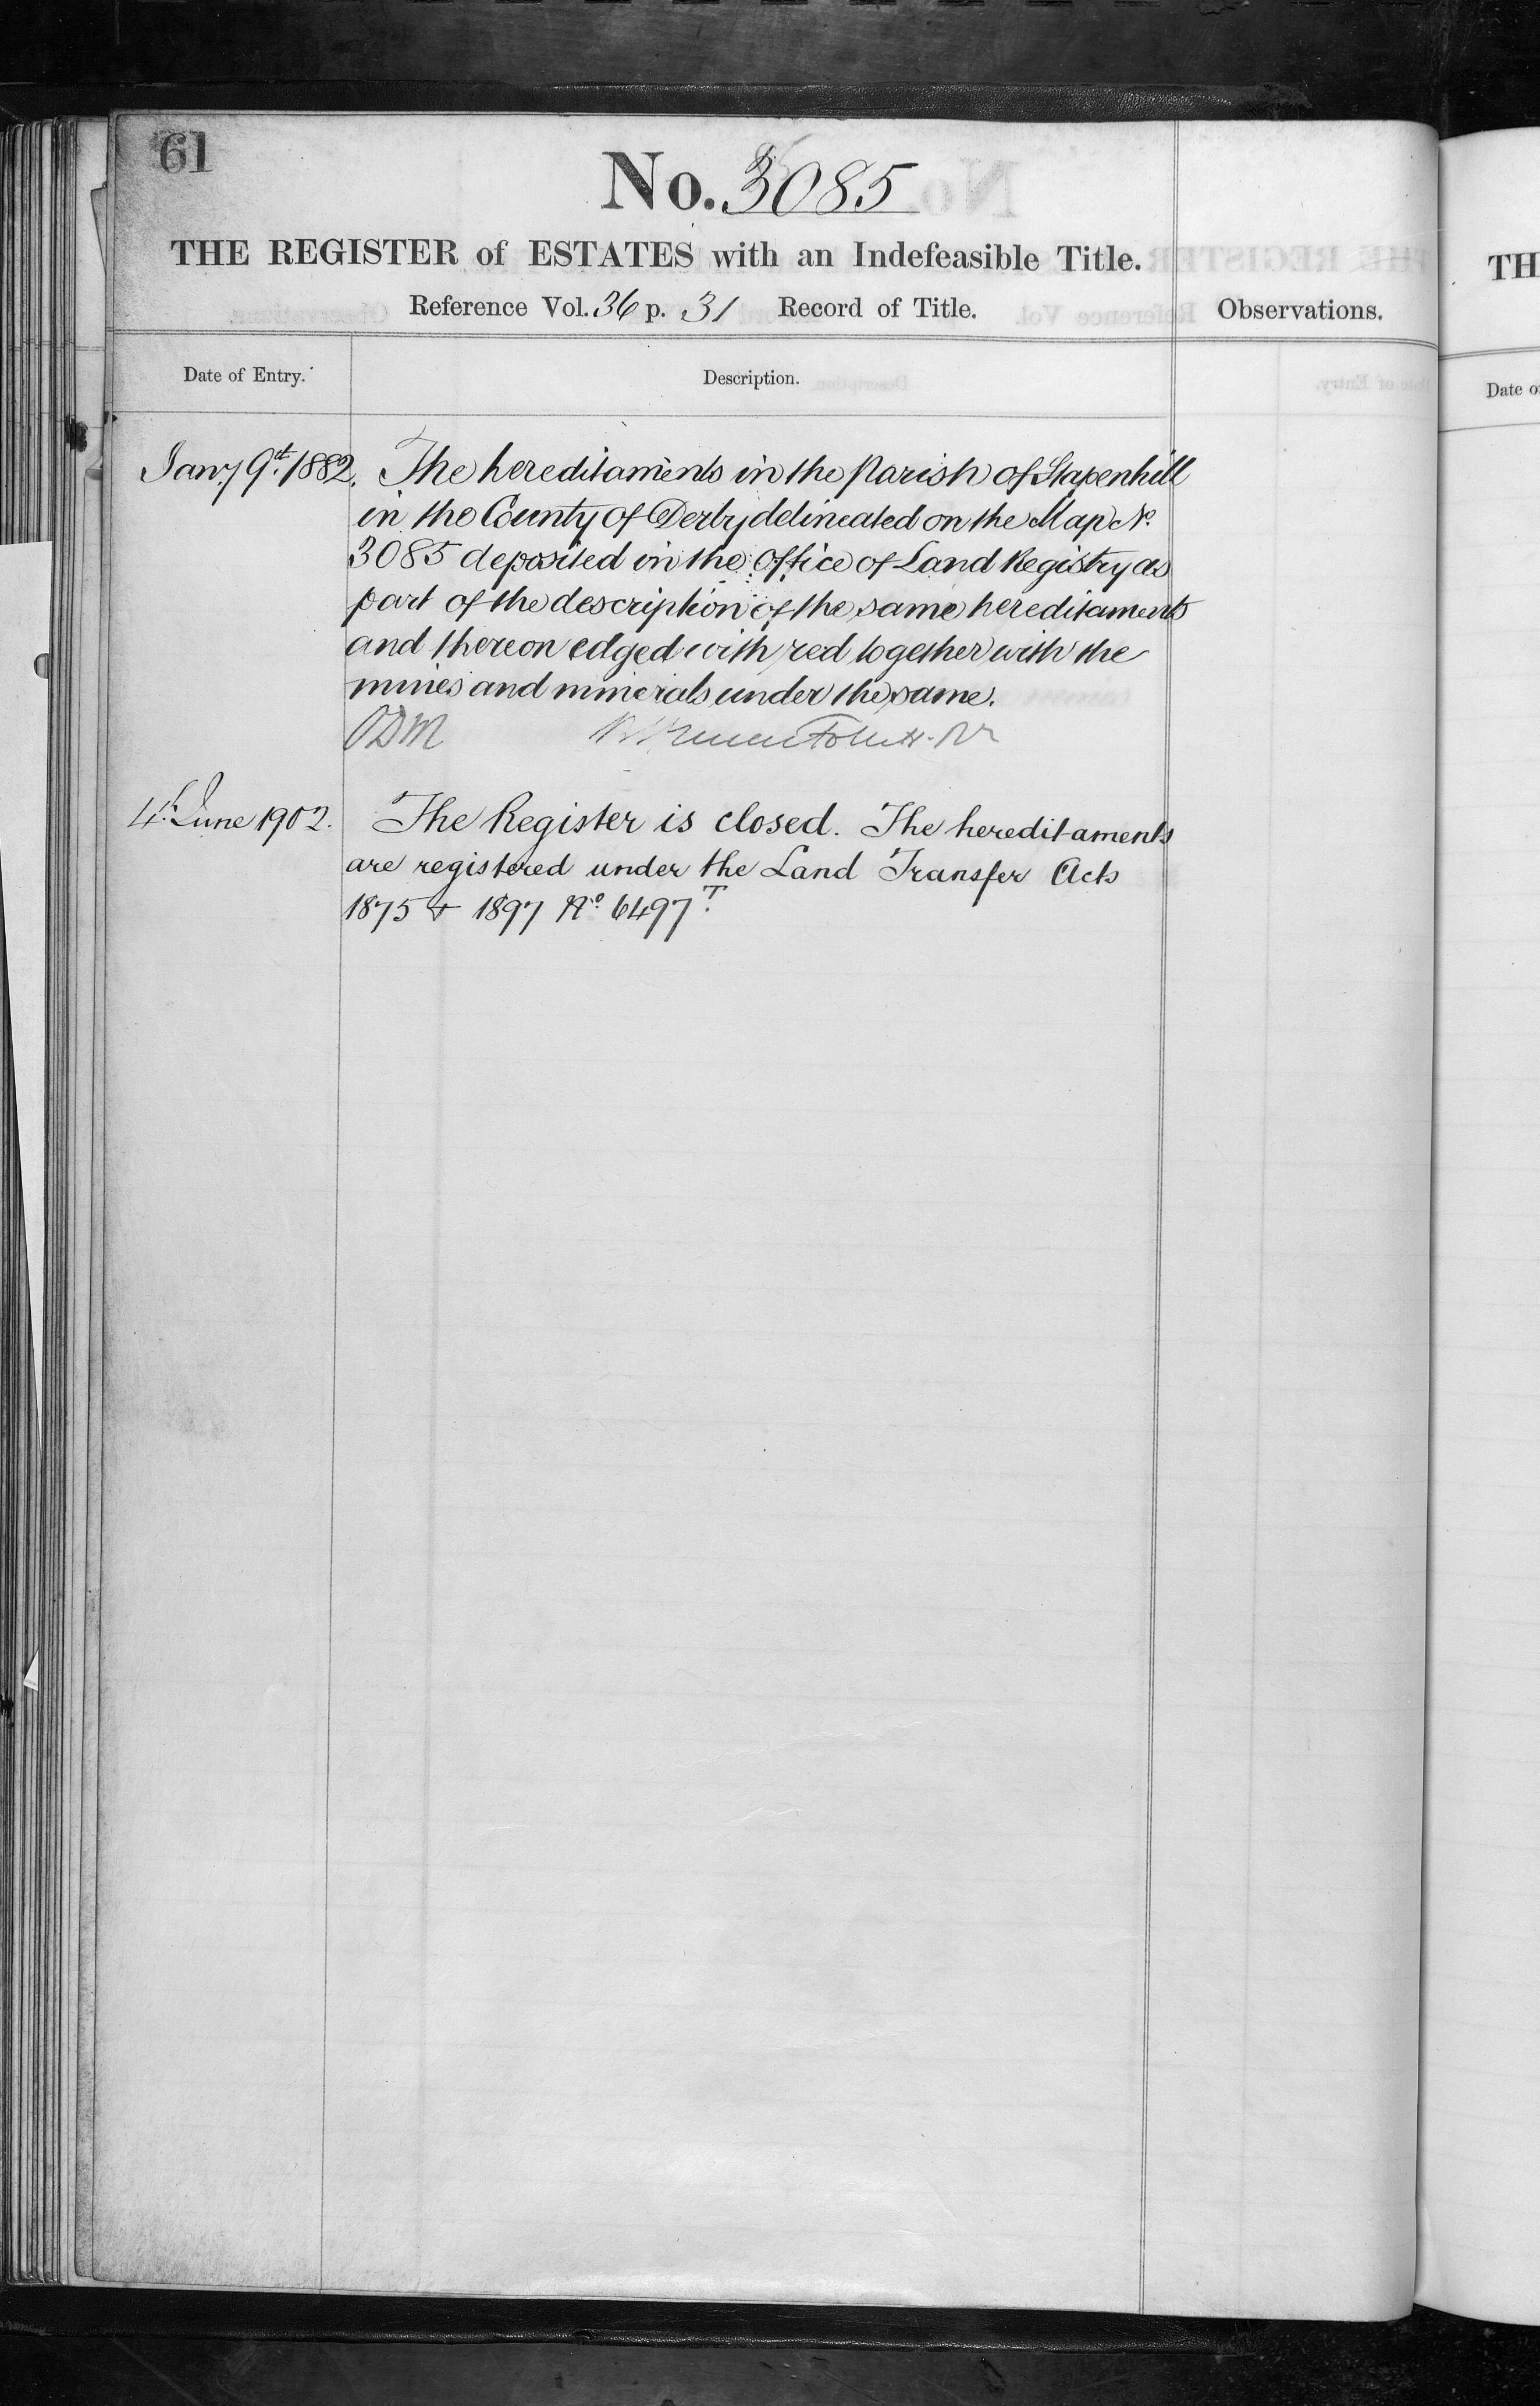 61
No. 3085
THE REGISTER of ESTATES with an Indefeasible Title.
Reference Vol. 36 p. 31 Record of Title.
Observations.
Date of Entry.
Description.
Jany 9th. 1882. The hereditaments in the Parish of Stapenhill
in the County of Derby delineated on the Map No.
3085 deposited in the Office of Land Registry as
part of the description of the same hereditaments
and thereon edged with red together with the
mines and minerals under the same.
4th. June 1902. The Register is closed. The hereditaments
are registered under the Land Transfer Acts
1875 & 1897 No. 6497 T.
TH
Date o